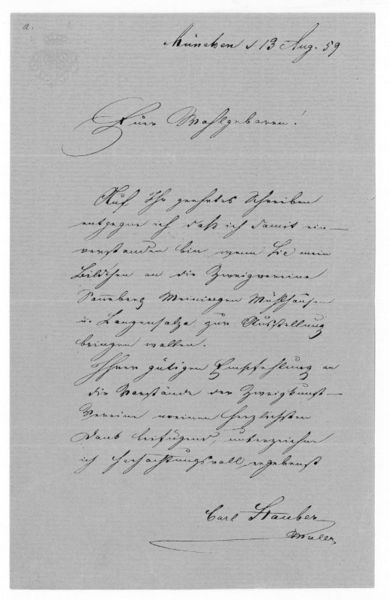 a.
München d 13 Aug. 59
Euer Wohlgeboren!
Auf Ihr geehrtes Schreiben
entgegne ich daß ich damit ein-
verstanden bin wenn Sie mein
Bildchen an die Zweigvereine
Meiningen Mühlhausen
u Langensalza zur Ausstellung
bringen wollen.
Ihrer gütigen Empfehlung an
die Vorstände der Zweigkunst-
Vereine meinen herzlichsten
Dank beifügend, unterzeichne
ich hochachtungsvoll ergebenst
Carl Stauber
Maler